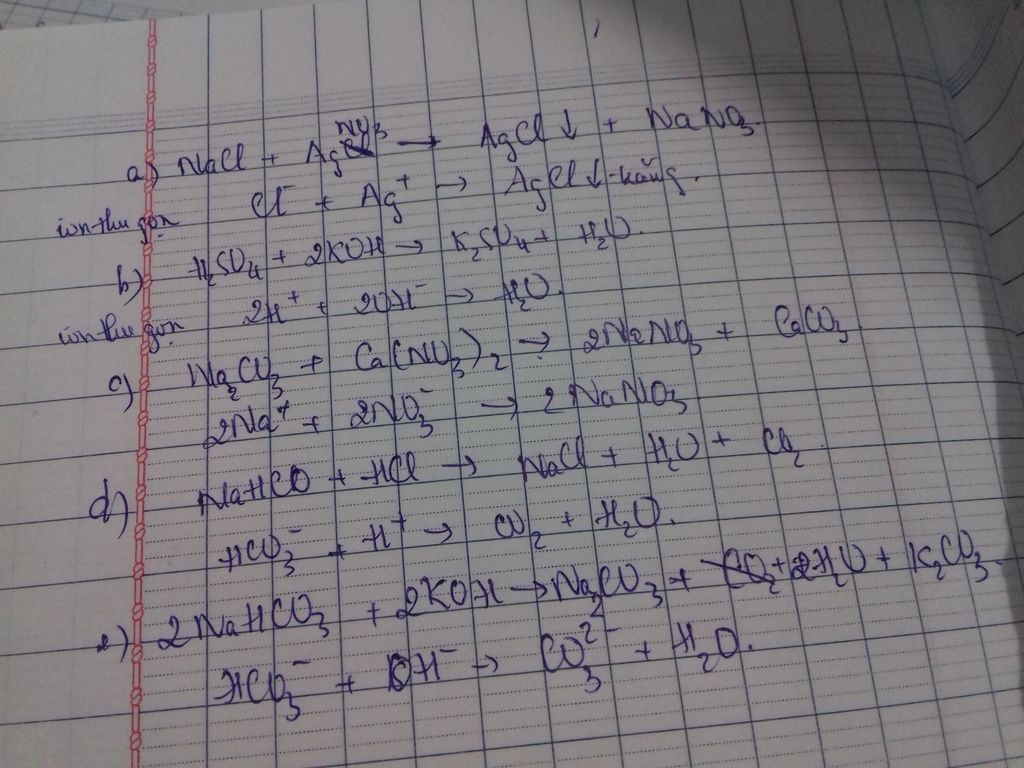 a) NaCl + AgNO3 → AgCl ↓ + NaNO3.
ion thu gọn Cl⁻ + Ag⁺ → AgCl ↓ trắng.
b) H2SO4 + 2KOH → K2SO4 + H2O.
ion thu gọn 2H⁺ + 2OH⁻ → H2O.
c) Na2CO3 + Ca(NO3)2 → 2NaNO3 + CaCO3
2Na⁺ + 2NO3⁻ → 2NaNO3
d) NaHCO + HCl → NaCl + H2O + CO2
HCO3⁻ + H⁺ → CO2 + H2O.
e) 2NaHCO3 + 2KOH → Na2CO3 + 2H2O + K2CO3.
HCO3⁻ + OH⁻ → CO3²⁻ + H2O.